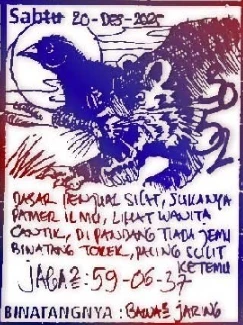 Sabtu 20-DES-2025
DASAR PENJUAL SILAT, SUKANYA
PAMER ILMU, LIHAT WANITA
CANTIK, DIPANDANG TIADA JEMU
BINATANG TOKEK, PALING SULIT
KETEMU
JAGA2: 59-06-37
BINATANGNYA : BAWA2 JARING